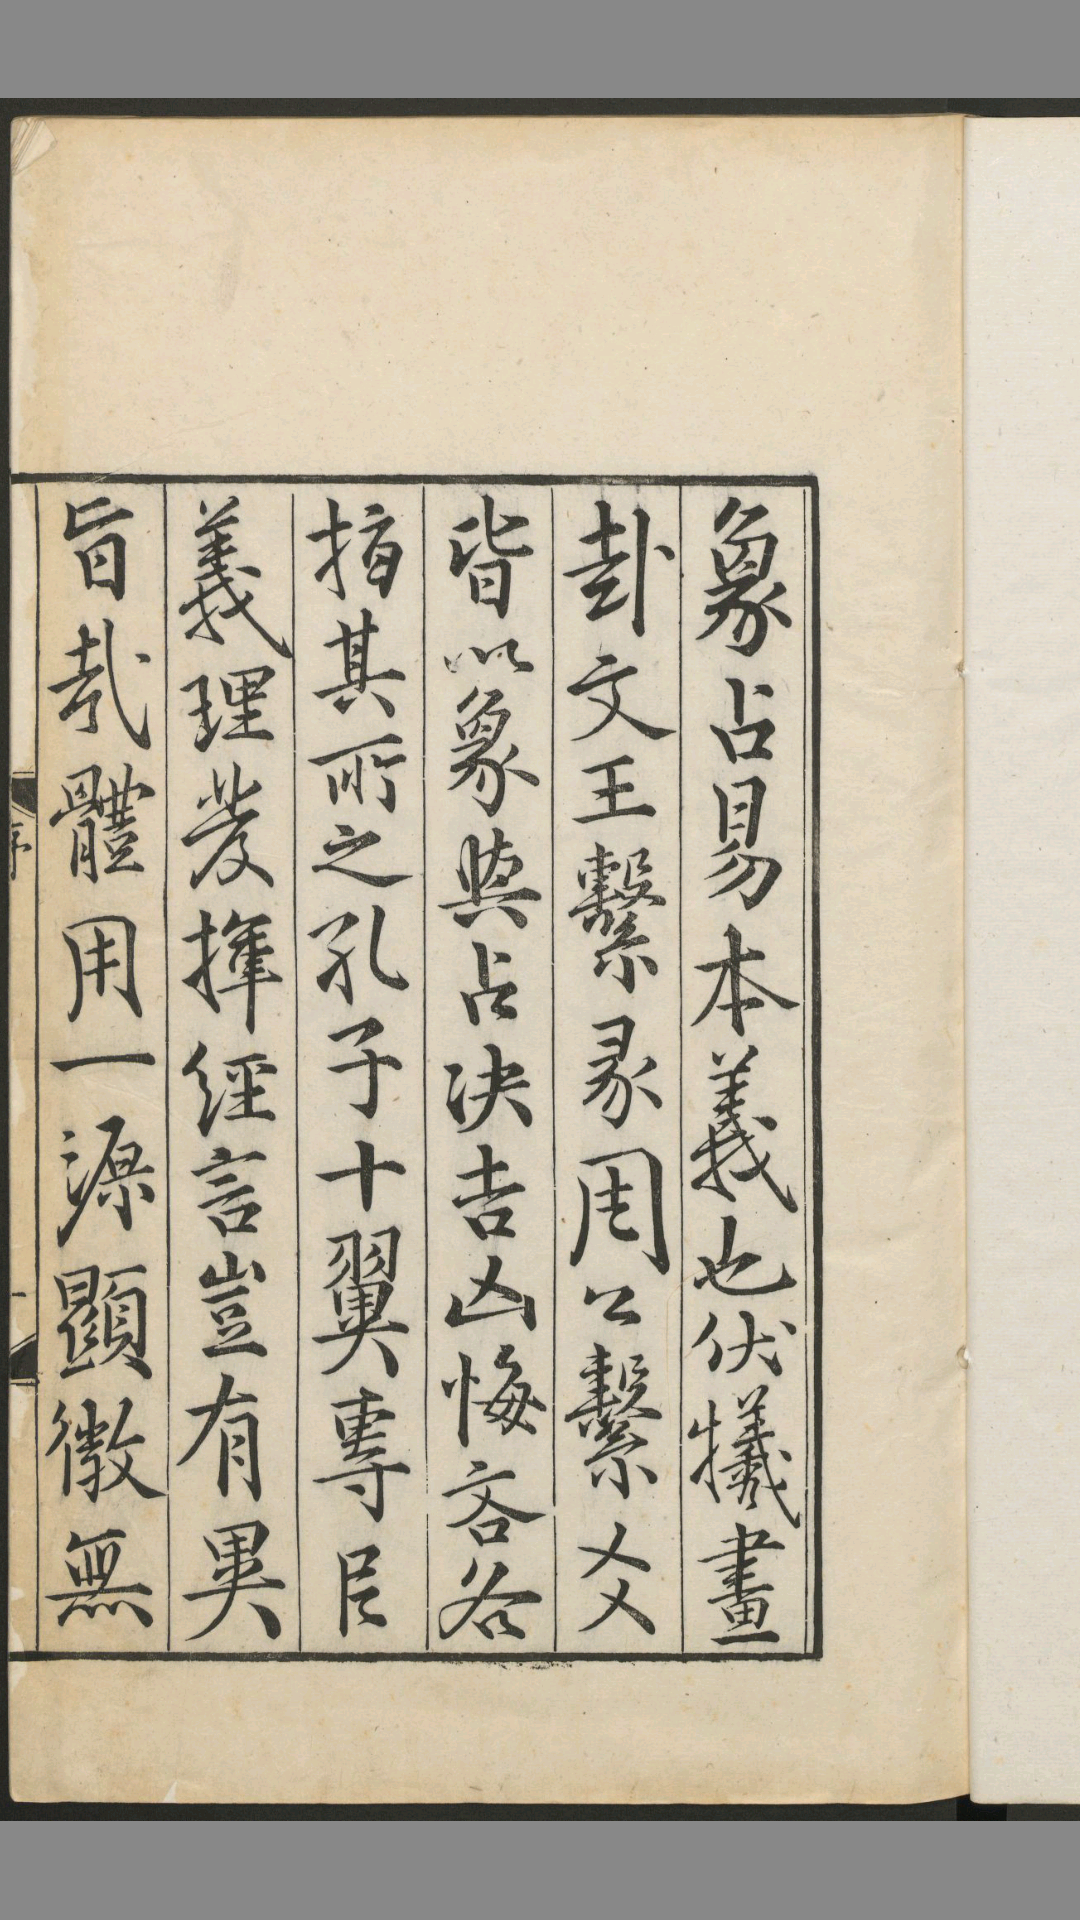 象占易本義也伏犧畫
卦文王繫彖周公繫爻
皆以象與占決吉凶悔吝各
指其所之孔子十翼專以
義理發揮經言豈有異
旨哉體用一源顯微無
序
一